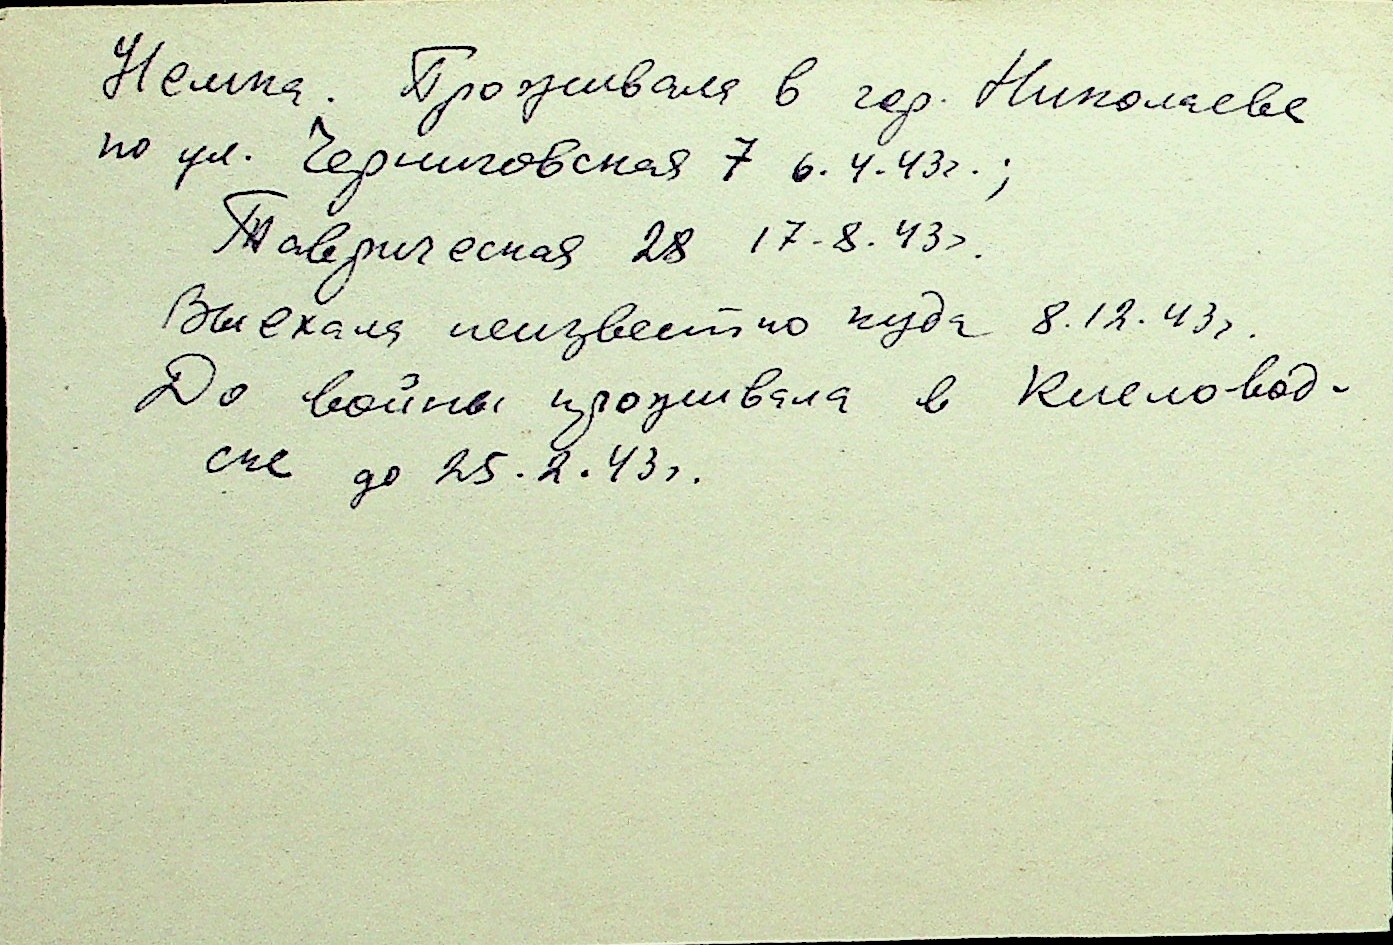 Немка. Проживала в гор. Николаеве
по ул. Черниговская 7 6.4.43г.;
Таврическая 28 17.8.43г.
Выехала неизвестно куда 8.12.43г.
До войны проживала в Кисловод-
ске до 25.2.43г.